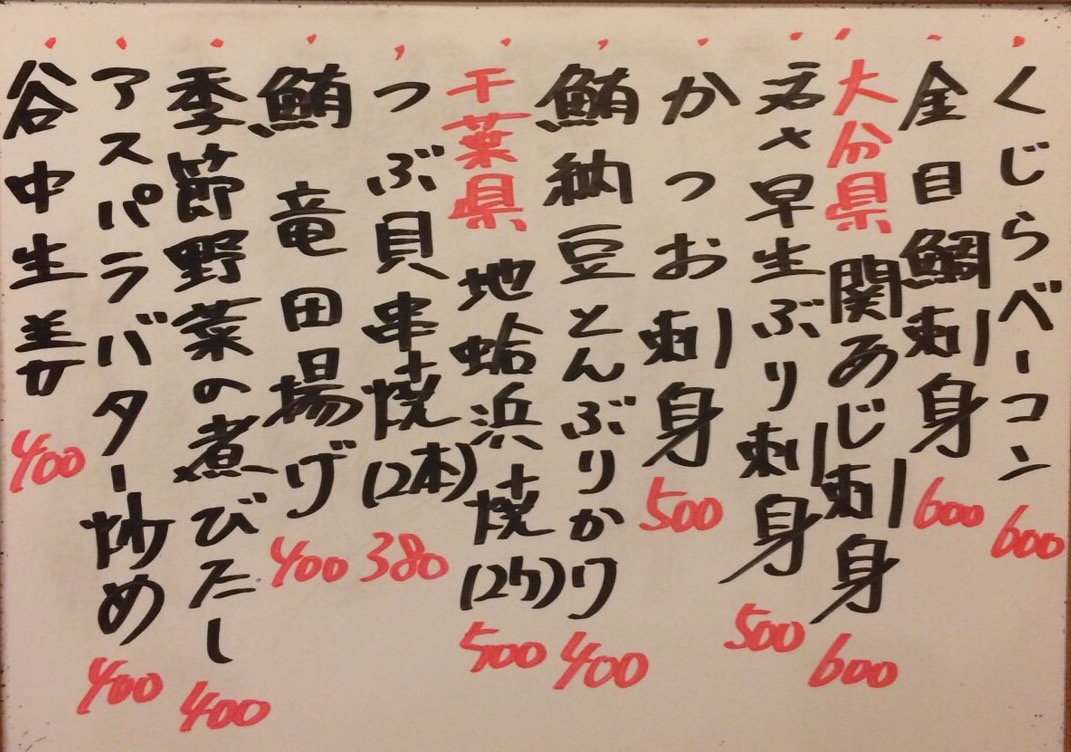 くじらベーコン 600
金目鯛刺身 600
大分県 関あじ刺身 600
若さ早生ぶり刺身 500
かつお刺身 500
鮪納豆とんぶりかけ 400
千葉県 地蛤浜焼(2ケ) 500
つぶ貝串焼(2本) 380
鮪竜田揚げ 400
季節野菜の煮びたし 400
アスパラバター炒め 400
谷中生姜 400